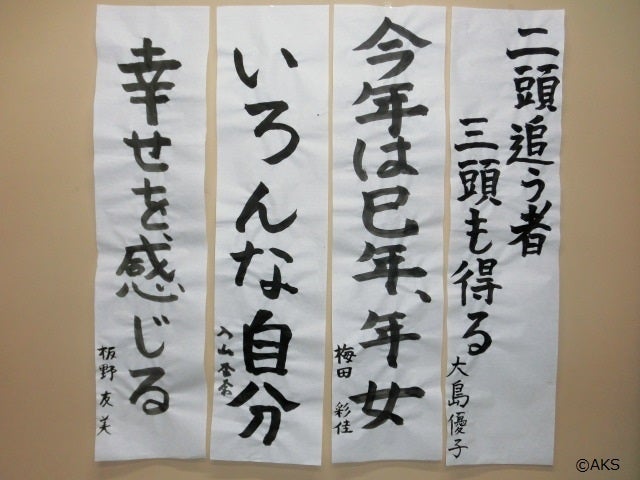 二頭追う者
三頭も得る
大島優子
今年は巳年、年女
梅田 彩佳
いろんな自分
入山杏奈
幸せを感じる
板野 友美
©AKS